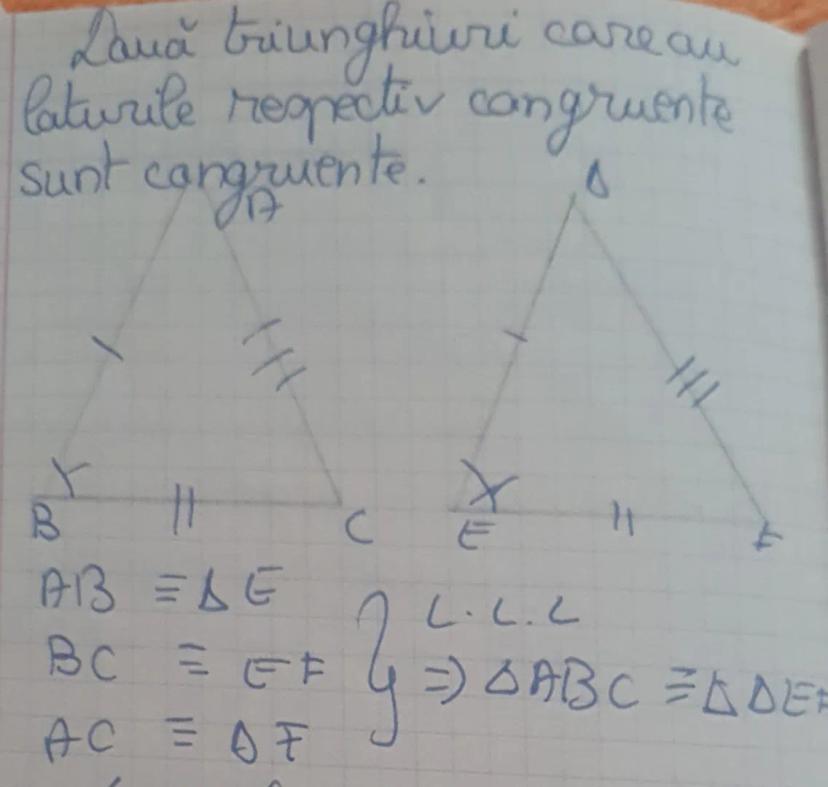 Două triunghiuri care au
laturile respectiv congruente
sunt congruente.
A
D
B
C
E
F
AB ≡ DE
BC ≡ EF
AC ≡ DF
L.L.L
=> ΔABC ≡ ΔDEF